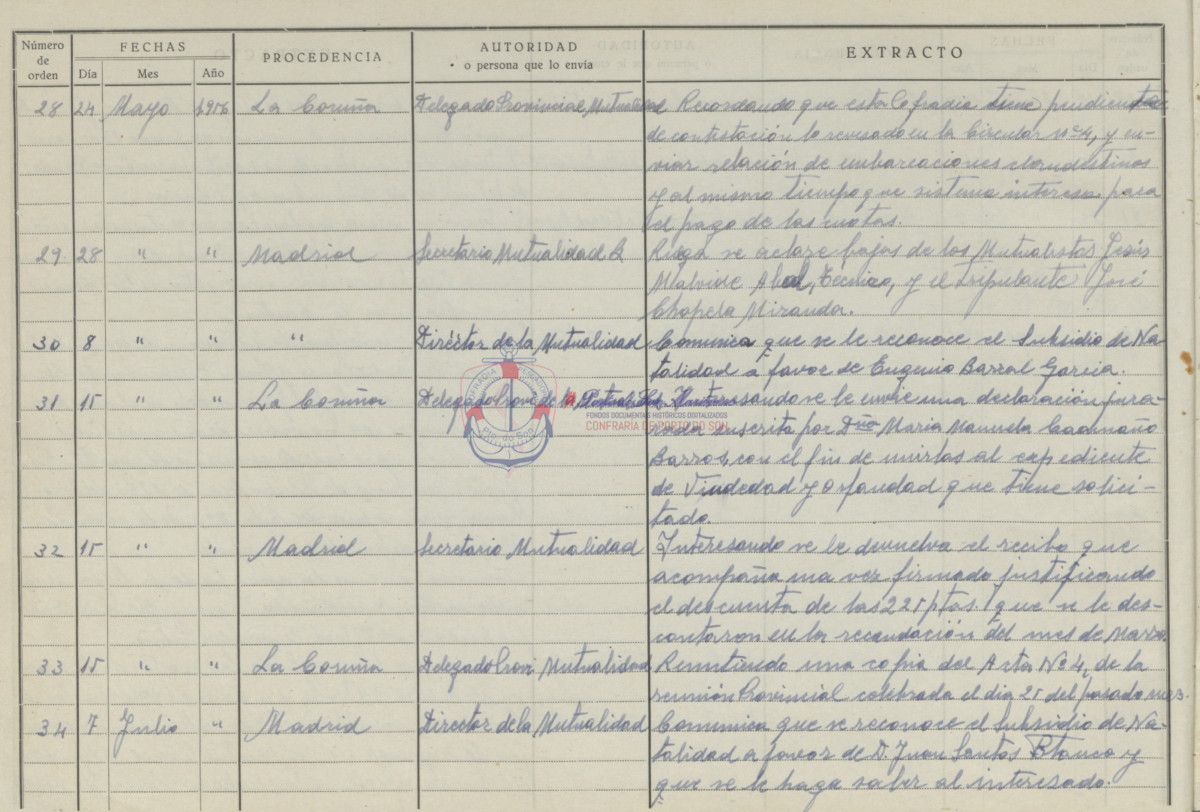 Número de orden FECHAS PROCEDENCIA AUTORIDAD o persona que lo envía EXTRACTO
Día Mes Año
28 24 Mayo 1956 La Coruña Delegado Provincial Mutualidad Recordando que esta Cofradia tiene pendiente
de contestación lo revesado en la Circular nº 4, y en-
viar relación de embarcaciones clandestinas
y al mismo tiempo que sistema interesa para
el pago de las cuotas.
29. 28 " " Madrid Secretario Mutualidad Ruega se aclare bajas de los Mutualistas Jesús
Malvide Abal, Tecnico, y el tripulante José
Chapela Miranda.
30 8 " " " Director de la Mutualidad Comunica que se le reconoce el Subsidio de Na
talidad a favor de Eugenio Barral Garcia.
31 15 " " La Coruña Delegado Prov. de la Mutualidad sando se le envie una declaración jura-
rada suscrita por Dña Maria Manuela Caamaño
Barros, con el fin de unirlas al expediente
de Viudedad y Orfandad que tiene solici-
tado.
32 15 " " Madrid Secretario Mutualidad Interesando se le devuelva el recibo que
acompaña una vez firmado justificando
el descuento de las 225 ptas. que se le des-
contaron en la recaudación del mes de Marzo.
33 15 " " La Coruña Delegado Prov. Mutualidad Remitiendo una copia del Acta Nº 4, de la
reunión Provincial celebrada el dia 25 del pasado mes.
34 7 Julio " Madrid Director de la Mutualidad Comunica que se reconoce el Subsidio de Na-
talidad a favor de D. Juan Santos Blanco y
que se le haga saber al interesado.
COFRADIA PESCADORES
Pto. do Son
FONDOS DOCUMENTAIS HISTÓRICOS DIXITALIZADOS
CONFRARÍA DE PORTO DO SON